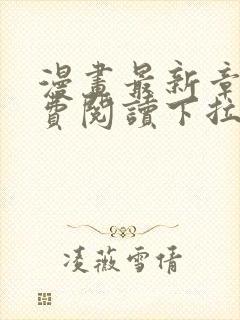 漫畫最新章
費閱讀下拉
凌薇雪倩